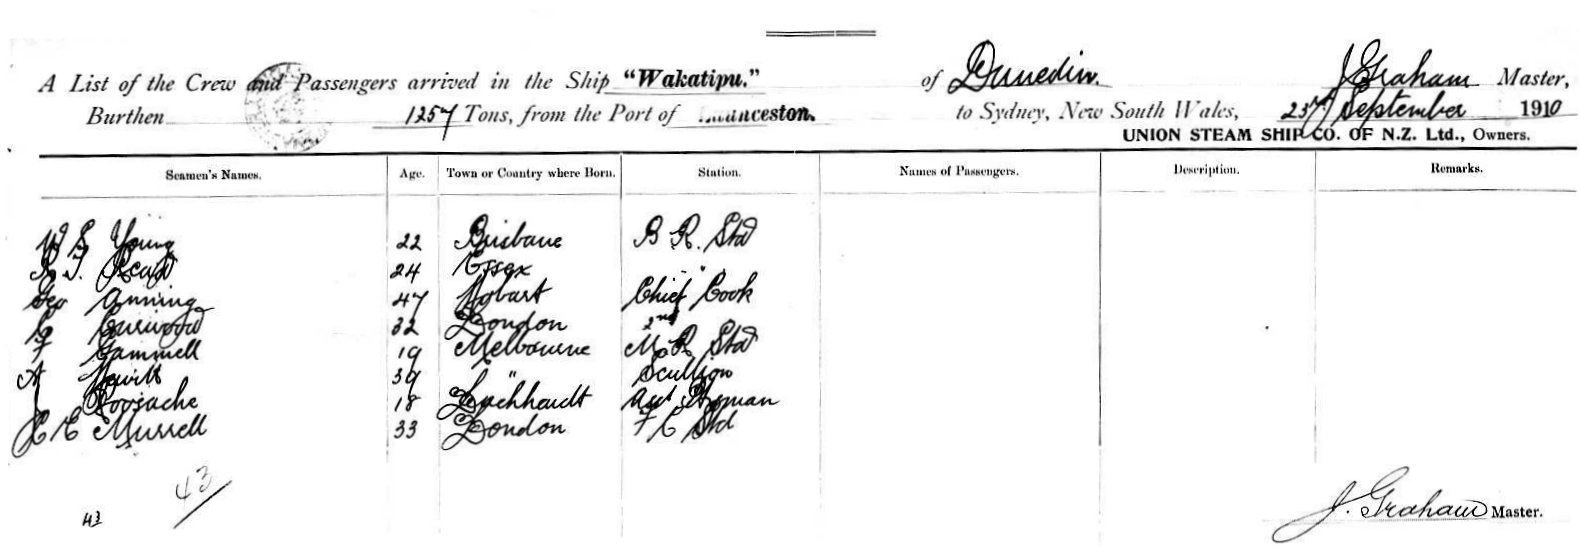 A List of the Crew and Passengers arrived in the Ship "Wakatipu." of Dunedin. J Graham Master,
Burthen 1257 Tons, from the Port of Launceston. to Sydney, New South Wales, 23rd September 1910
UNION STEAM SHIP CO. OF N.Z. Ltd., Owners.
Seamen's Names. Age. Town or Country where Born. Station. Names of Passengers. Description. Remarks.
W S Young 22 Brisbane B R. Std
24 Essex " "
Geo Anning 47 Hobart Chief Cook
32 London 2nd
F Gammell 19 Melbourne M R Std
A Hewitt 39 " Scullion
18 Leichhardt
E Murrell 33 London F C Std
43
43
J. Graham Master.